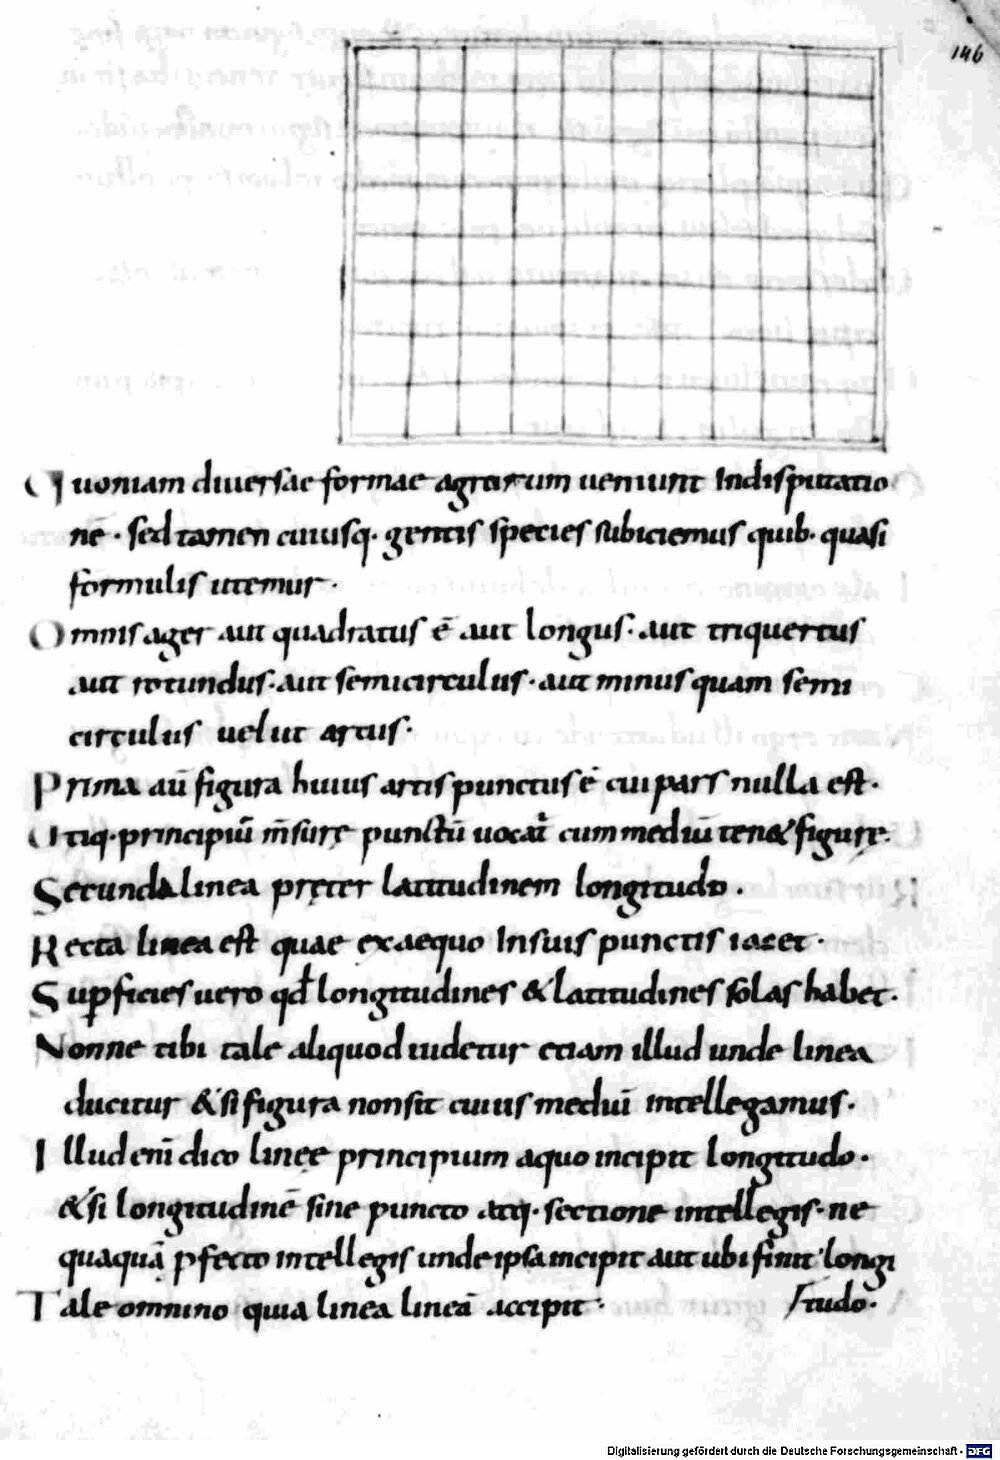 146
Quoniam diuersae formae agrorum ueniunt Indisputatio
nē · sed tamen cuiusq· gentis species subiciemus quib· quasi
formulis utemur ·
Omnis ager aut quadratus ē aut longus · aut triquetrus
aut rotundus · aut semicirculus · aut minus quam semi
circulus uelut arcus ·
Prima aū figura huius artis punctus ē cui pars nulla est ·
Utiq· principiū m̄surę punctū uocat̄ cum mediū ten& figurę ·
Secunda linea pręter latitudinem longitudo ·
Recta linea est quae exaequo Insuis punctis iacet ·
Sup̱ficies uero qđ longitudines & latitudines solas habet ·
Nonne tibi tale aliquod uidetur etiam illud unde linea
ducitur & si figura non sit cuius mediū intellegamus ·
Illud eni̅ dico lineę principium aquo incipit longitudo ·
& si longitudinē sine puncto atq· sectione intellegis · ne
quaquā p̱fecto intellegis unde ipsa incipit aut ubi finit longi
Tale omnino quia linea lineā accipit · tudo ·
Digitalisierung gefördert durch die Deutsche Forschungsgemeinschaft - DFG